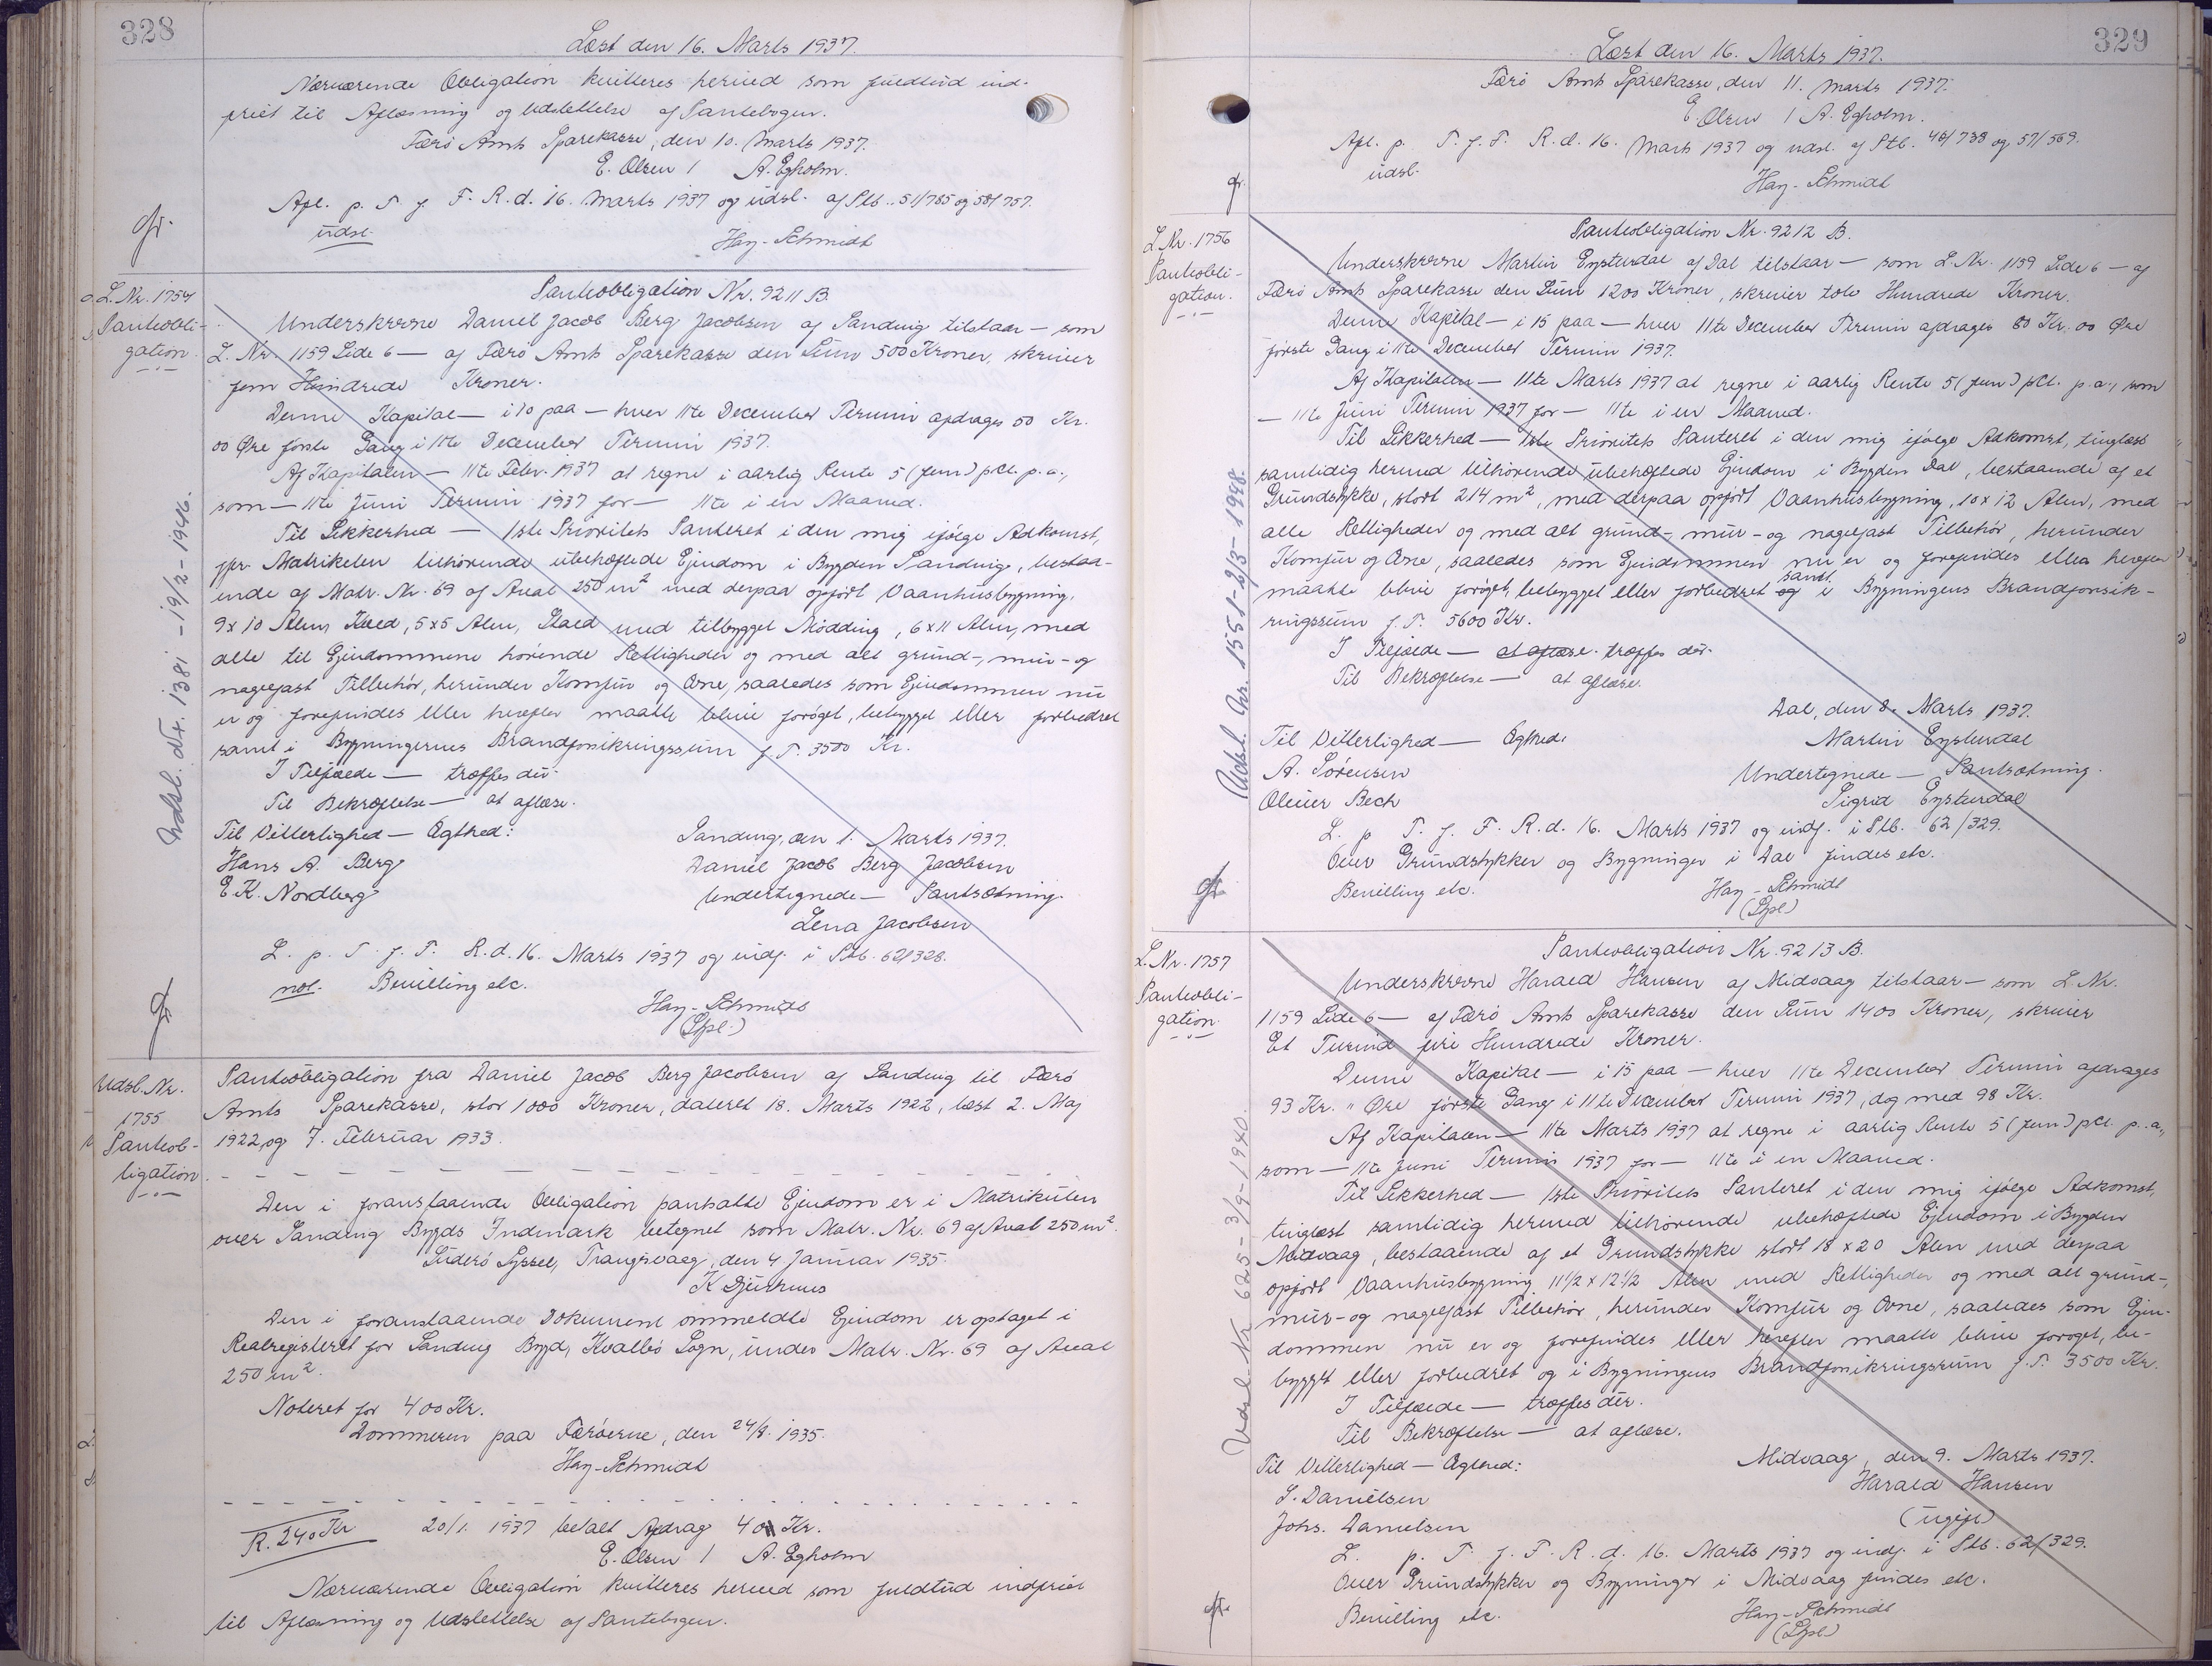 328
Læst den 16. Marts 1937.
Nærværende Obligation kvitteres herved som fuldtud ind-
friet til Aflæsning og Udslettelse af Pantebogen.
Færø Amts Sparekasse, den 10. Marts 1937.
E. Olsen / A. Egholm.
Afl. p. T. f. F. R. d. 16. Marts 1937 og udsl. af Ptb. 51/785 og 58/757.
udsl.
Hay-Schmidt
L. Nr. 1754
Panteobli-
gation.
Udsl. Nr. 1381 - 19/2 - 1946.
Panteobligation Nr. 9211 B.
Underskrevne Daniel Jacob Berg Jacobsen af Sandvig tilstaar — som
L. Nr. 1159 Side 6 — af Færø Amts Sparekasse den Sum 500 Kroner, skriver
fem Hundrede Kroner.
Denne Kapital — i 10 paa — hver 11te December Termin afdrages 50 Kr.
00 Øre første Gang i 11te December Termin 1937.
Af Kapitalen — 11te Febr. 1937 at regne i aarlig Rente 5 (fem) pCt. p. a.,
som — 11te Juni Termin 1937 for — 11te i en Maaned.
Til Sikkerhed — 1ste Prioritets Panteret i den mig ifølge Adkomst,
jfr. Matrikelen tilhørende ubehæftede Ejendom i Bygden Sandvig, bestaa-
ende af Matr. Nr. 69 af Areal 250 m² med derpaa opført Vaanhusbygning,
9 x 10 Alen, Kved, 5x5 Alen, Stald med tilbygget Mødding, 6 x 11 Alen, med
alle til Ejendommene hørende Rettigheder og med alt grund-, mur- og
nagelfast Tilbehør, herunder Komfur og Ovne, saaledes som Ejendommen nu
er og forefindes eller herefter maatte blive forøget, bebygget eller forbedret
samt i Bygningernes Brandforsikringssum f. T. 3500 Kr.
I Tilfælde — træffes der.
Til Bekræftelse — at aflæse.
Til Vitterlighed — Ægthed:
Sandvig, den 1. Marts 1937.
Hans A. Berg
Daniel Jacob Berg Jacobsen
E. K. Nordberg
Undertegnede — Pantsætning.
Lena Jacobsen
L. p. T. f. F. R. d. 16. Marts 1937 og indf. i Ptb. 62/328.
not. Bevilling etc.
Hay-Schmidt
(Spl.)
Udsl. Nr.
1755
Panteob-
ligation
Panteobligation fra Daniel Jacob Berg Jacobsen af Sandvig til Færø
Amts Sparekasse, stor 1000 Kroner, dateret 18. Marts 1922, læst 2. Maj
1922 og 7. Februar 1933.
Den i foranstaaende Obligation pantsatte Ejendom er i Matrikulen
over Sandvig Bygds Indmark betegnet som Matr. Nr. 69 af Areal 250 m².
Suderø Syssel, Trangisvaag, den 4 Januar 1935.
K Djurhuus
Den i foranstaaende Dokument ommeldte Ejendom er optaget i
Realregisteret for Sandvig Bygd, Kvalbø Sogn, under Matr. Nr. 69 af Areal
250 m².
Noteret for 400 Kr.
Dommeren paa Færøerne, den 24/8. 1935.
Hay-Schmidt
R. 240 Kr 20/1. 1937 betalt Afdrag 40 Kr.
E. Olsen / A. Egholm
Nærværende Obligation kvitteres herved som fuldtud indfriet
til Aflæsning og Udslettelse af Pantebogen.
329
Læst den 16. Marts 1937.
Færø Amts Sparekasse, den 11. Marts 1937.
E. Olsen / A. Egholm.
Afl. p. T. f. F. R. d. 16. Marts 1937 og udsl. af Ptb. 46/738 og 57/569.
udsl.
Hay-Schmidt
L. Nr. 1756
Panteobli-
gation.
Udsl. Nr. 1551-2/3-1948.
Panteobligation Nr. 9212 B.
Underskrevne Martin Eysturdal af Dal tilstaar — som L. Nr. 1159 Side 6 — af
Færø Amts Sparekasse den Sum 1200 Kroner, skriver tolv Hundrede Kroner.
Denne Kapital — i 15 paa — hver 11te December Termin afdrages 80 Kr. 00 Øre
første Gang i 11te December Termin 1937.
Af Kapitalen — 11te Marts 1937 at regne i aarlig Rente 5 (fem) pCt. p. a., som
— 11te Juni Termin 1937 for — 11te i en Maaned.
Til Sikkerhed — 1ste Prioritets Panteret i den mig ifølge Adkomst, tinglæst
samtidig hermed tilhørende ubehæftede Ejendom i Bygden Dal, bestaaende af et
Grundstykke, stort 214 m², med derpaa opført Vaanhusbygning, 10 x 12 Alen, med
alle Rettigheder og med alt grund-, mur- og nagelfast Tilbehør, herunder
Komfur og Ovne, saaledes som Ejendommen nu er og forefindes eller herefter
maatte blive forøget, bebygget eller forbedret og samt i Bygningens Brandforsik-
ringssum f. T. 5600 Kr.
I Tilfælde — at aflæse. træffes der.
Til Bekræftelse — at aflæse.
Dal, den 8. Marts 1937.
Til Vitterlighed — Ægthed:
Martin Eysturdal
A. Sørensen
Undertegnede — Pantsætning.
Oliver Bech
Sigrid Eysturdal
L. p. T. f. F. R. d. 16. Marts 1937 og indf. i Ptb. 62/329.
Over Grundstykker og Bygninger i Dal findes etc.
Bevilling etc.
Hay-Schmidt
(Spl.)
L. Nr. 1757
Panteobli-
gation.
Udsl. Nr. 625-3/9-1940.
Panteobligation Nr. 9213 B.
Underskrevne Harald Hansen af Midvaag tilstaar — som L. Nr.
1159 Side 6 — af Færø Amts Sparekasse den Sum 1400 Kroner, skriver
Et Tusind fire Hundrede Kroner.
Denne Kapital — i 15 paa — hver 11te December Termin afdrages
93 Kr. " Øre første Gang i 11te December Termin 1937, dog med 98 Kr.
Af Kapitalen — 11te Marts 1937 at regne i aarlig Rente 5 (fem) pCt. p. a.,
som — 11te Juni Termin 1937 for — 11te i en Maaned.
Til Sikkerhed — 1ste Prioritets Panteret i den mig ifølge Adkomst,
tinglæst samtidig hermed tilhørende ubehæftede Ejendom i Bygden
Midvaag, bestaaende af et Grundstykke stort 18 x 20 Alen med derpaa
opført Vaanhusbygning 11 1/2 x 12 1/2 Alen med Rettigheder og med alt grund-,
mur- og nagelfast Tilbehør, herunder Komfur og Ovne, saaledes som Ejen-
dommen nu er og forefindes eller herefter maatte blive forøget, be-
bygget eller forbedret og i Bygningens Brandforsikringssum f. T. 3500 Kr.
I Tilfælde — træffes der.
Til Bekræftelse — at aflæse.
Midvaag, den 9. Marts 1937.
Til Vitterlighed — Ægthed:
Harald Hansen
S. Danielsen
(ugift)
Johs. Danielsen
L. p. T. f. F. R. d. 16. Marts 1937 og indf. i Ptb. 62/329.
Over Grundstykker og Bygninger i Midvaag findes etc.
Bevilling etc.
Hay-Schmidt
(Spl.)